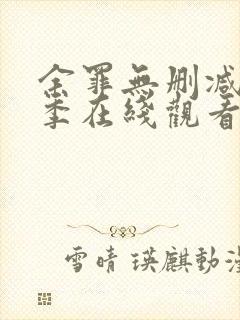 余罪無刪減
季在綫觀看
雪晴 瑛麒動漫